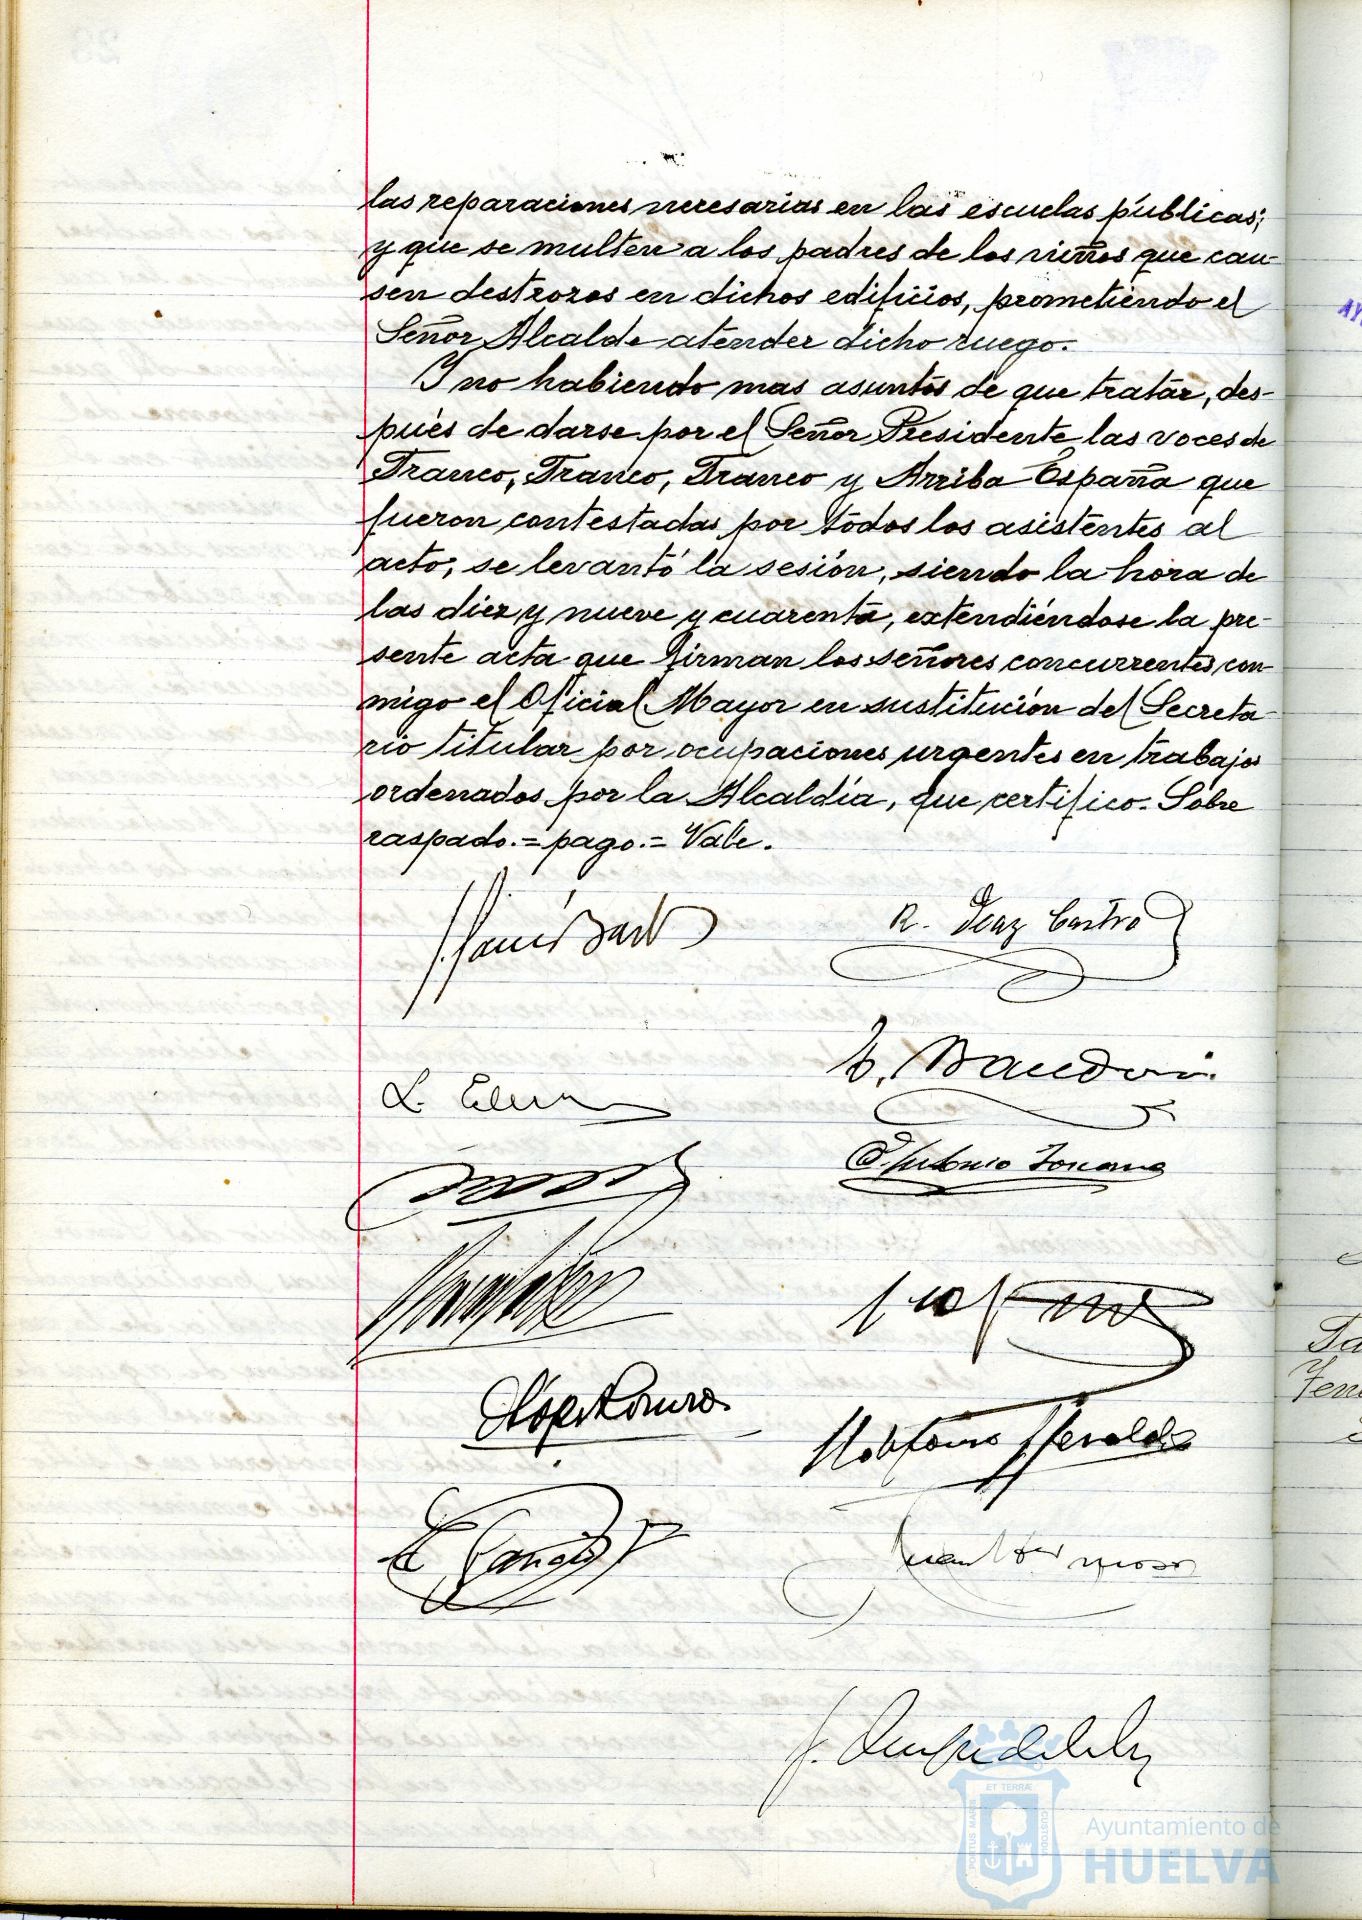 las reparaciones necesarias en las escuelas públicas;
y que se multen a los padres de los niños que cau-
sen destrozos en dichos edificios, prometiendo el
Señor Alcalde atender dicho ruego.
Y no habiendo mas asuntos de que tratar, des-
pués de darse por el Señor Presidente las voces de
Franco, Franco, Franco y Arriba España que
fueron contestadas por todos los asistentes al
acto, se levantó la sesión, siendo la hora de
las diez y nueve y cuarenta, extendiéndose la pre-
sente acta que firman los señores concurrentes con-
migo el Oficial Mayor en sustitución del Secreta-
rio titular por ocupaciones urgentes en trabajos
ordenados por la Alcaldía, que certifico. Sobre
raspado.= pago.= Vale.
R. Diaz Castro
PORTUS MARIS
ET TERRÆ
CUSTODIA
Ayuntamiento de
HUELVA